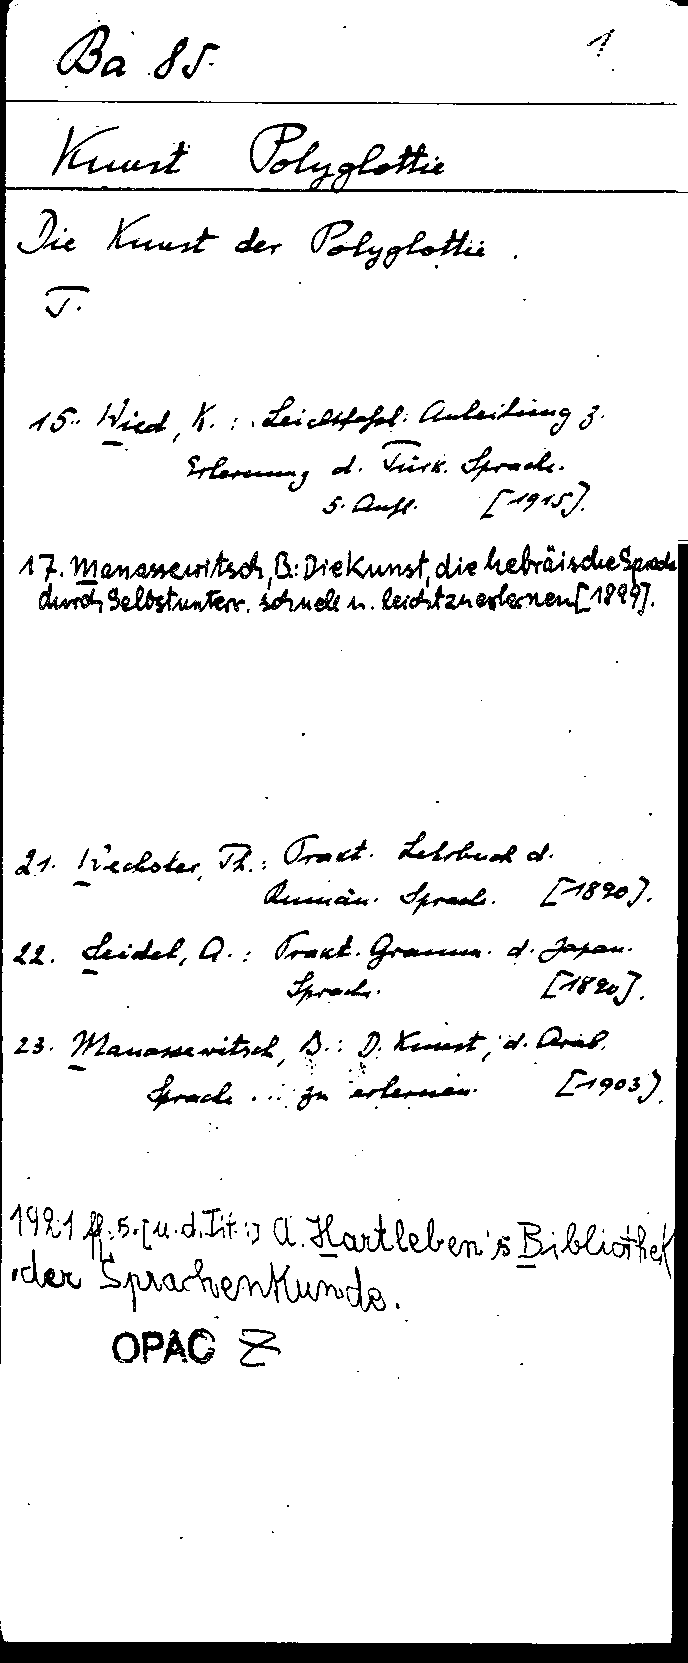 Ba 85. 1
Kunst Polyglottie
Die Kunst der Polyglottie.
T.
15. Wied, K.: Leichtfaßl. Anleitung z.
Erlernung d. Türk. Sprache.
5. Aufl. [1915].
17. Manassewitsch, B.: Die Kunst, die hebräische Sprache
durch Selbstunterr. schnell u. leicht zu erlernen
21. Wechsler, Th.: Prakt. Lehrbuch d.
Rumän. Sprache. [1890].
22. Seidel, A.: Prakt. Gramm. d. Japan.
Sprache. [1890].
23. Manassewitsch, B.: D. Kunst, d. Arab.
Sprache ... zu erlernen. [1903].
1921 ff. s. [u. d. Tit.:] A. Hartleben's Bibliothek
der Sprachenkunde.
OPAC Z